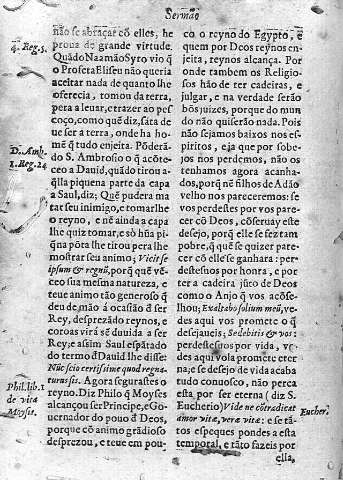 Sermão
4. Reg. 5.
não se abraçar cõ elles, he
prova de grande virtude.
Quãdo Naamão Syro vio q̃
o Profeta Eliseu não queria
aceitar nada de quanto lhe
oferecia, tomou da terra,
pera a levar, e trazer ao pes
coço, como quẽ diz, sáta de
ue ser a terra, onde ha ho-
mẽ q̃ tudo enjeita. Põderã-
D. Amb.
1. Reg. 24
do S. Ambrosio o q̃ acõte-
ceo a Dauid, quãdo tirou a-
q̃lla piquena parte da capa
a Saul, diz; Que pudera ma
tar seu inimigo, e tomarlhe
o reyno, e nẽ ainda a capa
lhe quiz tomar, e sò hũa pi-
q̃na põta lhe tirou pera lhe
mostrar seu animo; Vicit se
ipsum & regnũ, porq̃ quẽ vẽ-
ceo sua mesma natureza, e
teue animo tão generoso q̃
deu de mão á ocasião d̃ ser
Rey, desprezado reynos, e
coroas virá sẽ duuida a ser
Rey; e assim Saul espãtado
do termo d̃ Dauid lhe disse:
Nũc scio certissime quod regna-
turus sis. Agora segurastes o
Phil. lib. 1
de vita
Moysis.
reyno. Diz Philo q̃ Moyses
alcançou ser Principe, e Go-
vernador do pouo d̃ Deos,
porque cõ animo grãdioso
desprezou, e teue em pou-
co o reyno do Egypto, e
quem por Deos reynos en-
jeita, reynos alcança. Por
onde tambem os Religio-
sos hão de ter cadeiras, e
julgar, e na verdade serão
bõs juizes, porque do mun
do não quiserão nada. Pois
não sejamos baixos nos es-
piritos, e ja que por sobe-
jos nos perdemos, não os
tenhamos agora acanha-
dos, porq̃ nẽ filhos de Adão
velho nos pareceremos: se
vos perdestes por vos pare-
cer cõ Deos, cõseruay este
desejo, porq̃ elle se fez tam
pobre, q̃ quẽ se quizer pare
cer cõ elle se ganhara: per-
destesuos por honra, e por
ter a cadeira jũto de Deos
como o Anjo q̃ vos acõse-
lhou; Exaltabo solium meũ, ve-
des aqui vos promete o q̃
desejaueis; Sedebitis & vos:
perdestesuos por vida, ve-
des aqui vola promete eter
na, e se desejo de vida acaba
tudo conuosco, não perca
esta por ser eterna (diz S.
Eucher.
Eucherio) Vide ne cõtradicat
amor vitæ, veræ vitæ: e se tã-
tos espeques pondes a esta
temporal, e tãto fazeis por
ella,